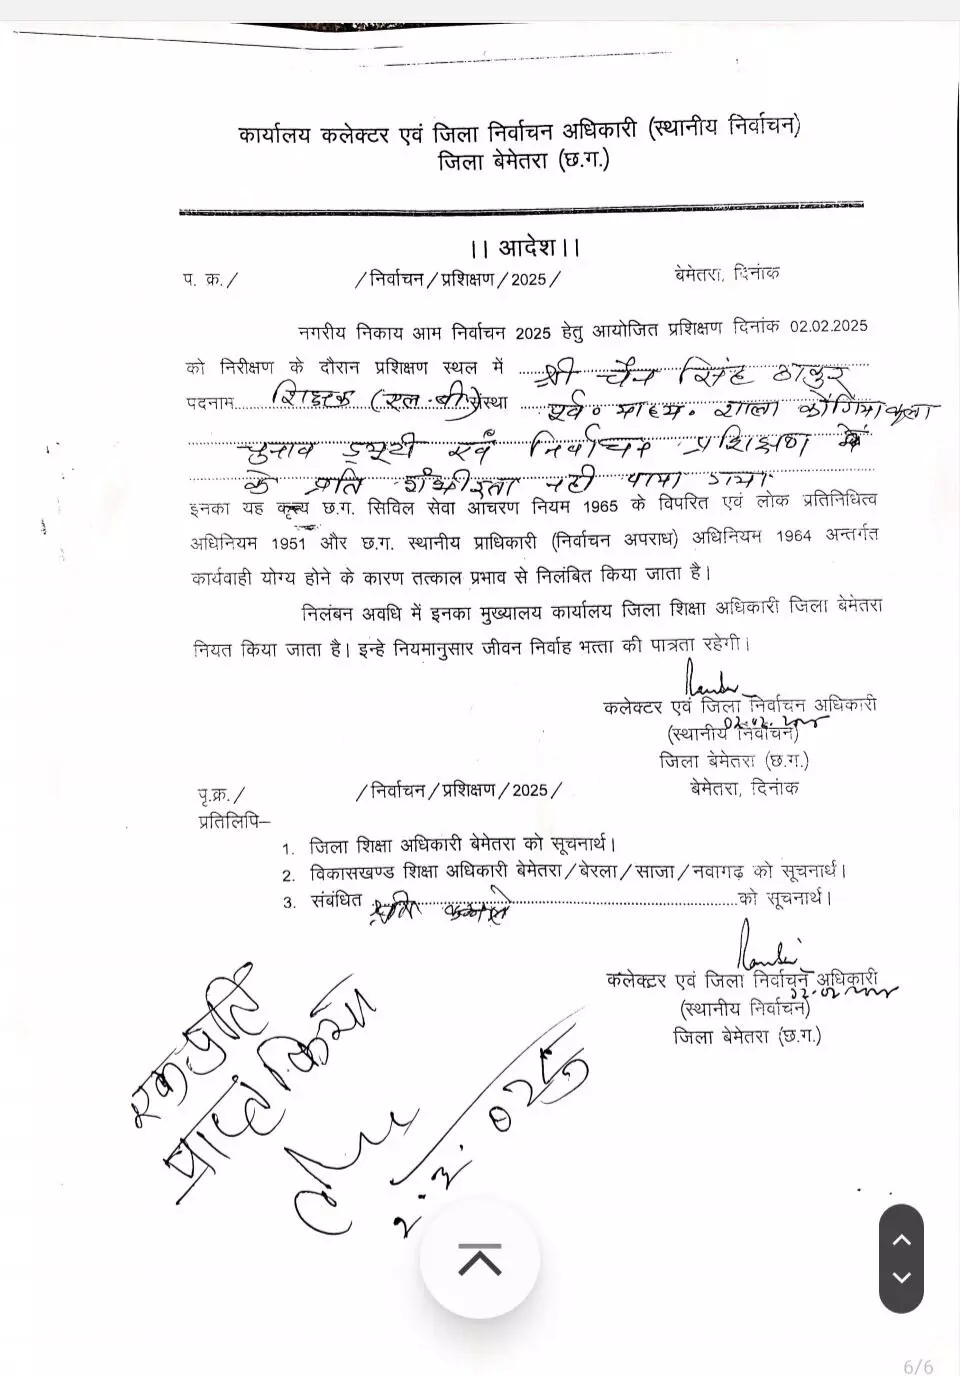 कार्यालय कलेक्टर एवं जिला निर्वाचन अधिकारी (स्थानीय निर्वाचन)
जिला बेमेतरा (छ.ग.)
।। आदेश।।
प. क्र. / /निर्वाचन/प्रशिक्षण/2025/ बेमेतरा, दिनांक
नगरीय निकाय आम निर्वाचन 2025 हेतु आयोजित प्रशिक्षण दिनांक 02.02.2025
को निरीक्षण के दौरान प्रशिक्षण स्थल में श्री चैन सिंह ठाकुर
पदनाम शिक्षक (एल.बी) संस्था पूर्व. माध्य. शाला
चुनाव ड्यूटी एवं निर्वाचन प्रशिक्षण
के प्रति गंभीरता नही पाया गया
इनका यह कृत्य छ.ग. सिविल सेवा आचरण नियम 1965 के विपरित एवं लोक प्रतिनिधित्व
अधिनियम 1951 और छ.ग. स्थानीय प्राधिकारी (निर्वाचन अपराध) अधिनियम 1964 अन्तर्गत
कार्यवाही योग्य होने के कारण तत्काल प्रभाव से निलंबित किया जाता है।
निलंबन अवधि में इनका मुख्यालय कार्यालय जिला शिक्षा अधिकारी जिला बेमेतरा
नियत किया जाता है। इन्हे नियमानुसार जीवन निर्वाह भत्ता की पात्रता रहेगी।
कलेक्टर एवं जिला निर्वाचन अधिकारी
(स्थानीय निर्वाचन)
जिला बेमेतरा (छ.ग.)
पृ.क्र. / /निर्वाचन/प्रशिक्षण/2025/ बेमेतरा, दिनांक
प्रतिलिपि–
1. जिला शिक्षा अधिकारी बेमेतरा को सूचनार्थ।
2. विकासखण्ड शिक्षा अधिकारी बेमेतरा/बेरला/साजा/नवागढ़ को सूचनार्थ।
3. संबंधित को सूचनार्थ।
कलेक्टर एवं जिला निर्वाचन अधिकारी
(स्थानीय निर्वाचन)
जिला बेमेतरा (छ.ग.)
एक प्रति
प्राप्त किया
6/6